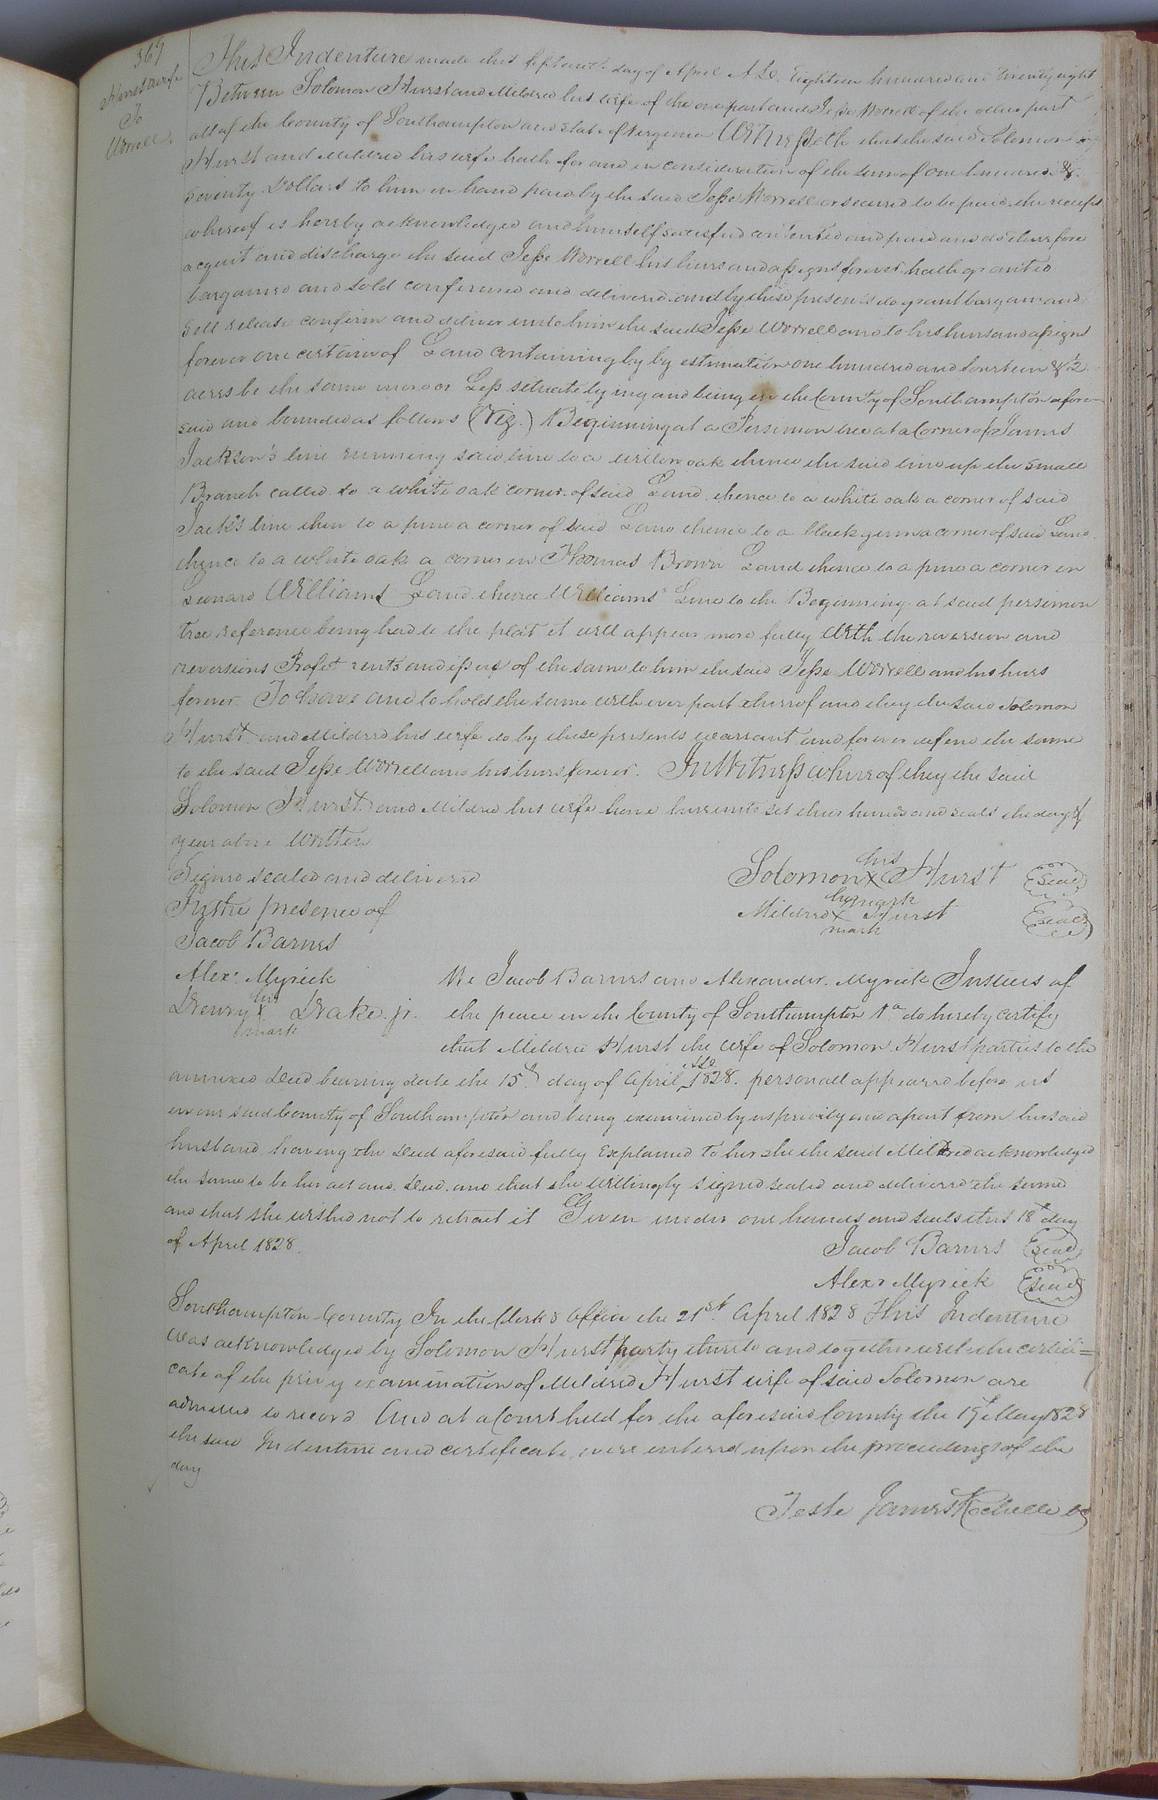 367
Hurst & wife
To
Worrell
This Indenture made this fifteenth day of April A.D. Eighteen hundred and Twenty eight
Between Solomon Hurst and Mildred his wife of the one part and Jesse Worrell of the other part
all of the County of Southampton and State of Virginia Witnesseth that the said Solomon
Hurst and Mildred his wife hath for and in consideration of the sum of one hundred &
seventy Dollars to him in hand paid by the said Jesse Worrell or secured to be paid the receipt
whereof is hereby acknowledged and himself satisfied contented and paid and do therefore
acquit and discharge the said Jesse Worrell his heirs and assigns forever hath granted
bargained and sold confirmed and delivered and by these presents do grant bargain and
sell release confirm and deliver unto him the said Jesse Worrell and to his heirs and assigns
forever one certain of Land containing by by estimation one hundred and fourteen & 1/2
acres be the same more or Less situate lying and being in the County of Southampton afore-
said and bounded as follows (Viz.) Beginning at a Persimon tree at a Corner of James
Jackson's line running said line to a willow oak thence the said line up the small
Branch called to a white oak corner of said Land thence to a white oak a corner of said
Jack's line then to a pine a corner of said Land thence to a black gum a corner of said Land
thence to a white oak a corner in Thomas Brown Land thence to a pine a corner in
Leonard Williams Land thence Williams' Line to the Beginning at said persimon
tree reference being had to the plat it will appear more fully With the reversion and
reversions Profit rents and issues of the same to him the said Jesse Worrell and his heirs
forever. To have and to hold the same with ever part thereof and they the said Solomon
Hurst and Mildred his wife do by these presents warrant and forever defend the same
to the said Jesse Worrell and his heirs forever. In Witness whereof they the said
Solomon Hurst and Mildred his wife have hereunto set their hands and seals the day &
year above Written
Signed sealed and delivered
In the presence of
Jacob Barnes
Alexr. Myrick
his
Drewry X Drake. jr.
mark
his
Solomon X Hurst (Seal)
her mark
Mildred X Hurst (Seal)
mark
We Jacob Barnes and Alexander Myrick Justices of
the peace in the County of Southampton Va do hereby certify
that Mildred Hurst the wife of Solomon Hurst parties to the
annexed deed bearing date the 15th day of April AD. 1828. personall appeared before us
in our said County of Southampton and being examined by us privily and apart from her said
husband having the deed aforesaid fully Explained to her she the said Mildred acknowledged
the same to be her act and deed and that she willingly signed sealed and delivered the same
and that she wished not to retract it Given under our hands and seals this 18th day
of April 1828.
Jacob Barnes (Seal)
Alexr Myrick (Seal)
Southampton County In the Clerk's Office the 21st April 1828 This Indenture
was acknowledged by Solomon Hurst party thereto and together with the certifi=
cate of the privy examination of Mildred Hurst wife of said Solomon are
admitted to record And at a Court held for the aforesaid County the 19th May 1828
the said Indenture and certificate were entered upon the proceedings of the
day
Teste James Rochelle CC